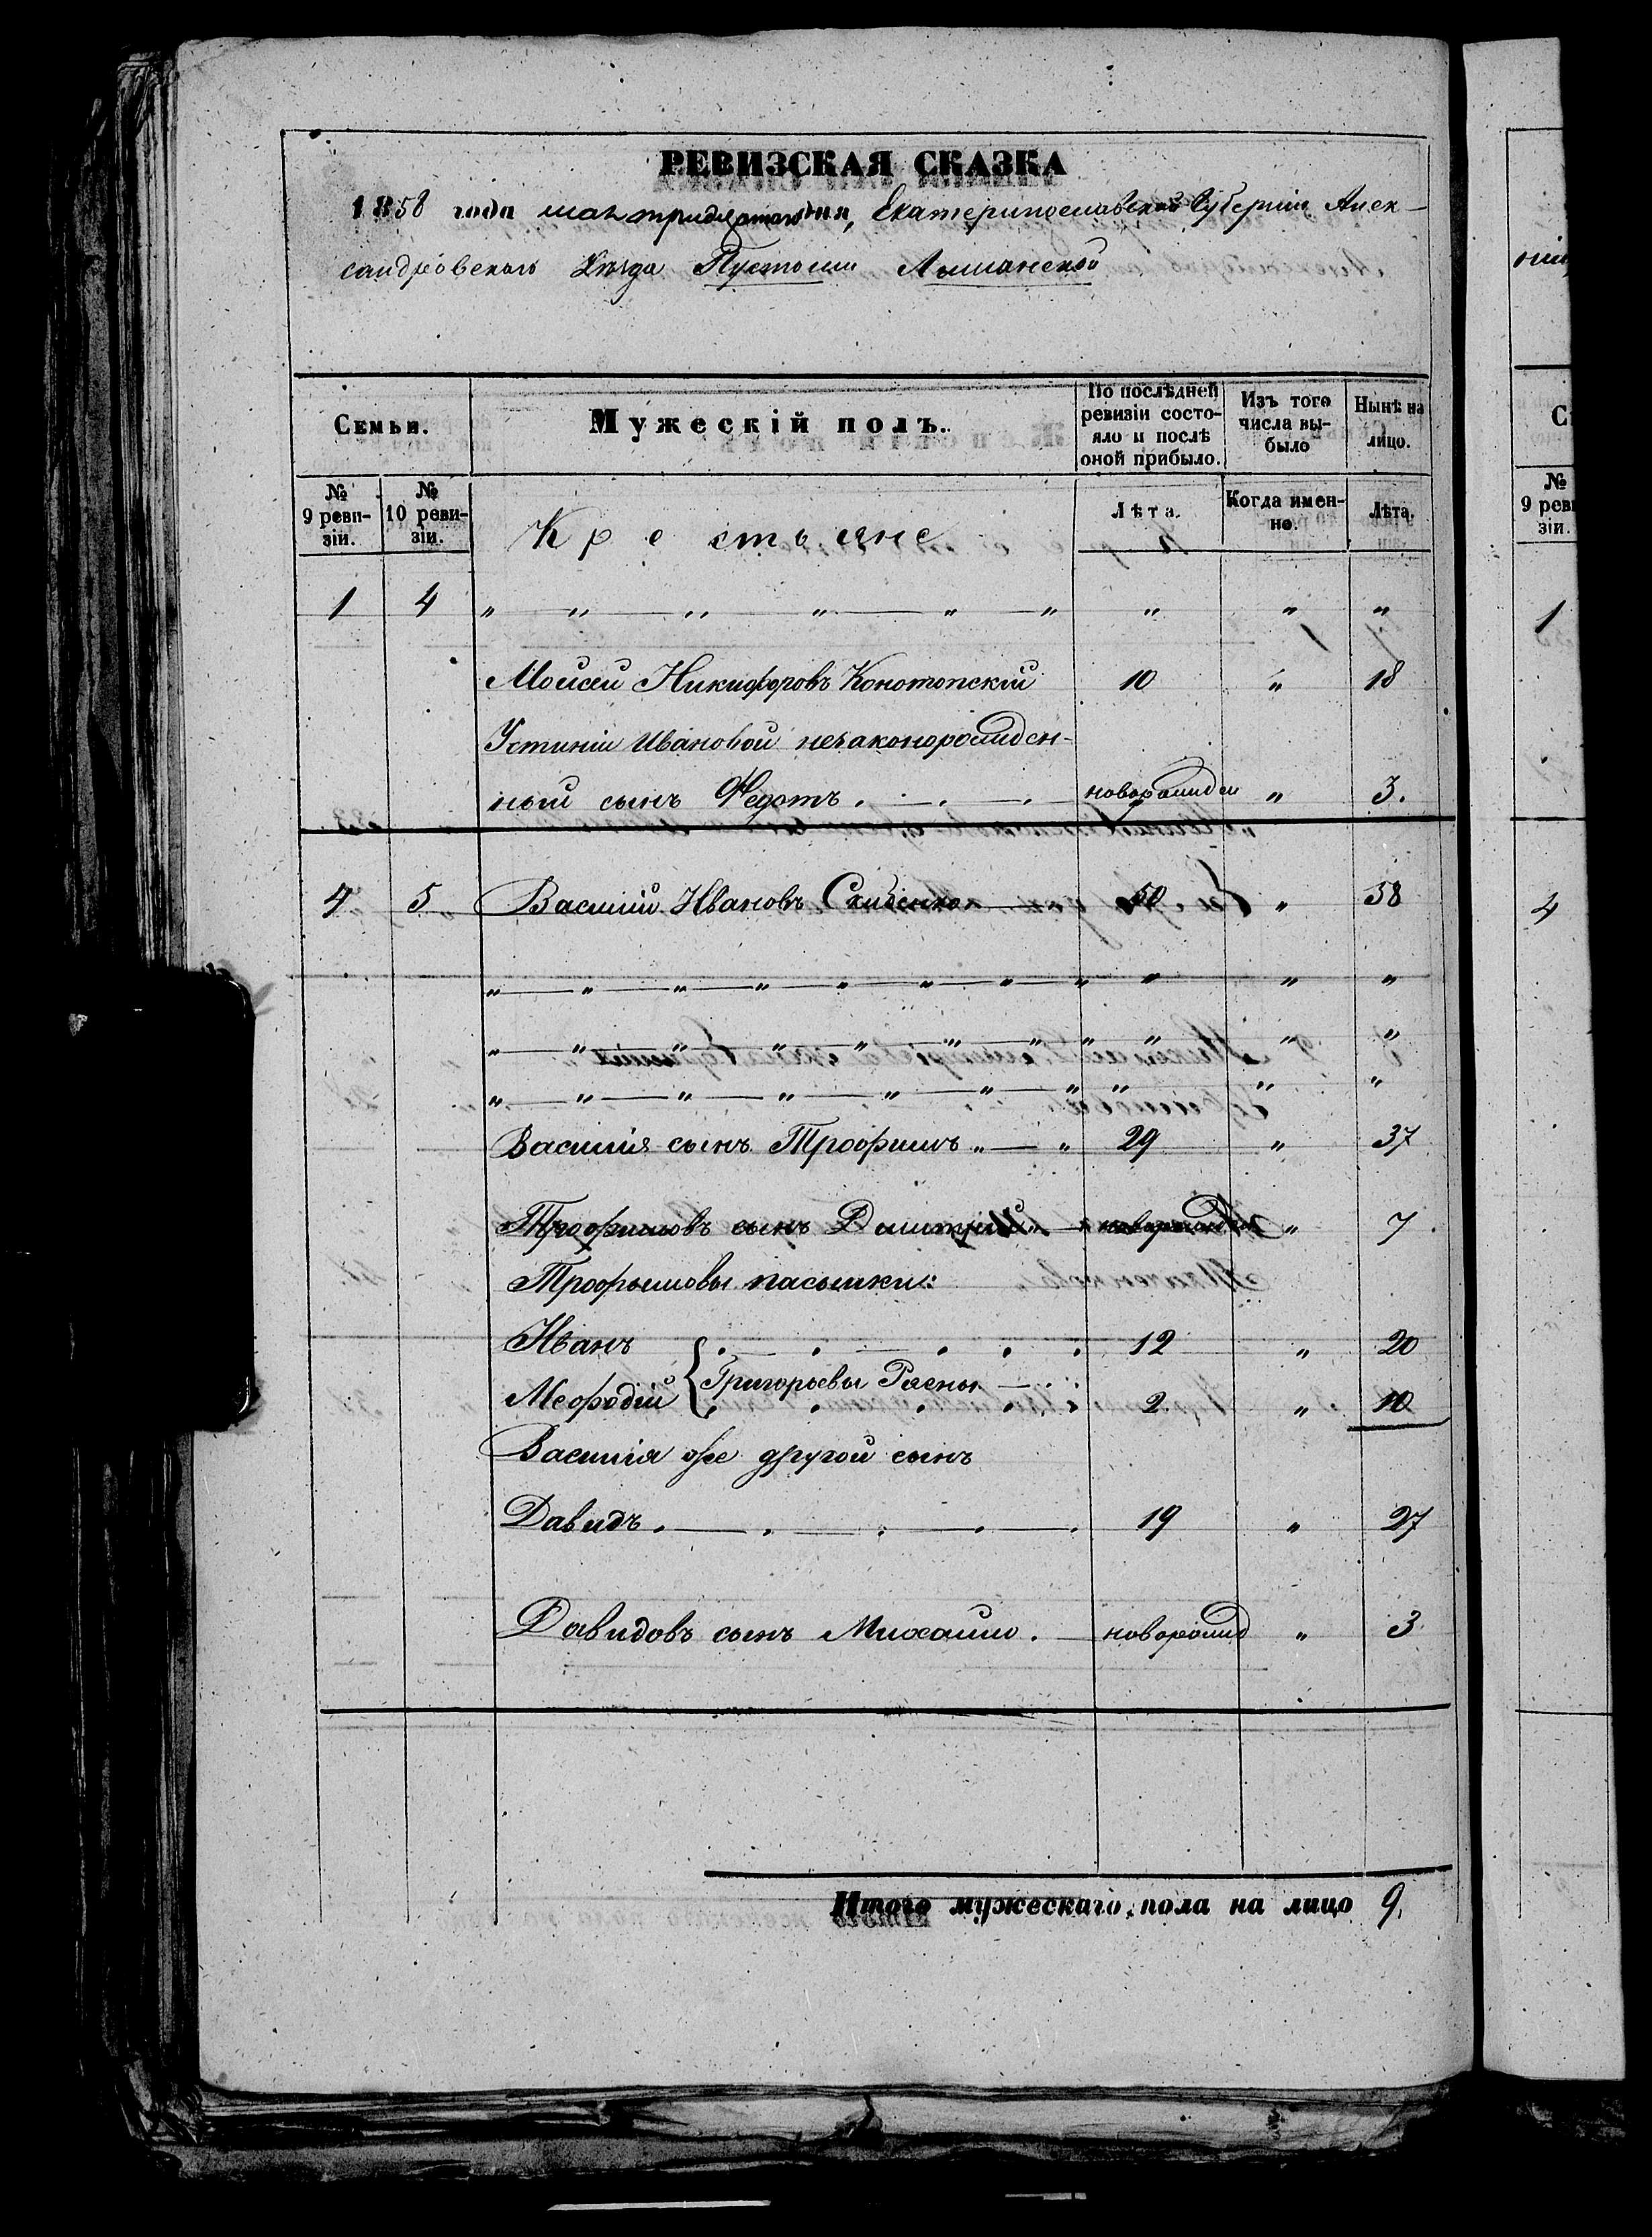 РЕВИЗСКАЯ СКАЗКА
1858 года мая тридцатого дня, Екатеринославской Губерніи Алек-
сандровскаго Уѣзда Пустоши Лышанской
Семьи.
Мужескій полъ.
По послѣдней ревизіи состо-
яло и послѣ
оной прибыло.
Изъ того
числа вы-
было
Нынѣ на
лицо.
№
9 реви-
зіи.
№
10 реви-
зіи.
Крестьяне
Лѣта.
Когда имен-
но.
Лѣта.
1 4 „ „ „ „ „ „ „ „ „
Моисей Никифоровъ Конотопскій 10 „ 18
Устиніи Ивановой незаконорожден-
ный сынъ Федотъ . . . новорожден „ 3.
4 5 Василій Ивановъ Скибенко 50 „ 58
„ „ „ „ „ „ „ „ „ „ „
„ „ „ „ „ „ „ „ „ „ „
„ „ „ „ „ „ „ „ „ „ „
Василія сынъ Трофимъ „ „ 29 „ 37
Трофимовъ сынъ Дмитрій „ новорожден „ 7
Трофимовы пасынки:
Иванъ . . . . . 12 „ 20
Григорьевы Расны
Мефодій . . . . . 2 „ 10
Василія же другой сынъ
Давидъ . . . . . 19 „ 27
Давидовъ сынъ Михаилъ . новорожд „ 3
Итого мужескаго пола на лицо 9.
№
9 реви
зіи.
1
4